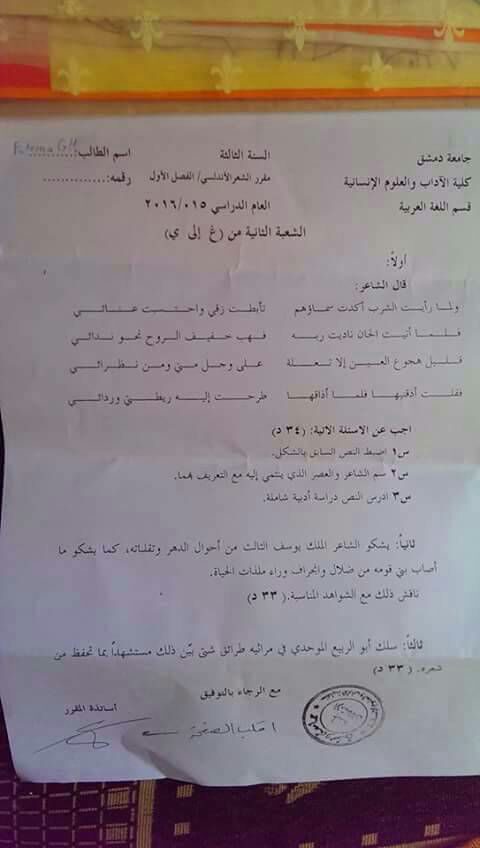 جامعة دمشق السنة الثالثة اسم الطالب: Fatema GH
كلية الآداب والعلوم الإنسانية مقرر الشعر الأندلسي/ الفصل الأول رقمه:..............
قسم اللغة العربية العام الدراسي ٢٠١٦/٠١٥
الشعبة الثانية من (غ إلى ي)
أولاً:
قال الشاعر:
ولما رأيت الشرب أكدت سماؤهم تأبطت زقي واحتسبت عنـــائـي
فلـــما أتيت الحان ناديت ربـه فهب خفيـف الروح نحو ندائـي
قليـل هجوع العـين إلا تعـلـة على وجل مني ومن نظـرائـي
فقلت أذقنيها فلما أذاقها طرحت إليه ريطتي وردائـي
اجب عن الاسئلة الاتية: (٣٤ د)
س١ اضبط النص السابق بالشكل.
س٢ سم الشاعر والعصر الذي ينتمي إليه مع التعريف بهما.
س٣ ادرس النص دراسة أدبية شاملة.
ثانياً: يشكو الشاعر الملك يوسف الثالث من أحوال الدهر وتقلباته، كما يشكو ما
أصاب بني قومه من ضلال وانجراف وراء ملذات الحياة.
ناقش ذلك مع الشواهد المناسبة. (٣٣ د)
ثالثاً: سلك أبو الربيع الموحدي في مراثيه طرائق شتى بيّن ذلك مستشهداً بما تحفظ من
شعره. (٣٣ د)
مع الرجاء بالتوفيق
أساتذة المقرر
اقلب الصفحة